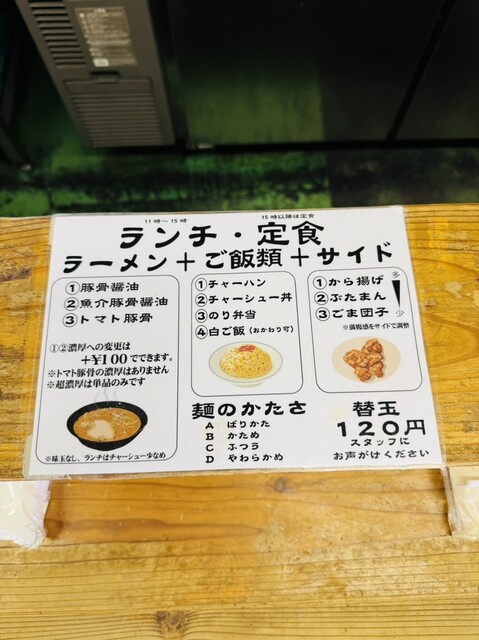 11時～15時
15時以降は定食
ランチ・定食
ラーメン＋ご飯類＋サイド
①豚骨醤油
②魚介豚骨醤油
③トマト豚骨
①②濃厚への変更は
＋¥100でできます。
※トマト豚骨の濃厚はありません
※超濃厚は単品のみです
※味玉なし、ランチはチャーシュー少なめ
①チャーハン
②チャーシュー丼
③のり弁当
④白ご飯（おかわり可）
①から揚げ
②ぶたまん
③ごま団子
多
少
※満腹感をサイドで調整
麺のかたさ
A ばりかた
B かため
C ふつう
D やわらかめ
替玉
120円
スタッフに
お声がけください